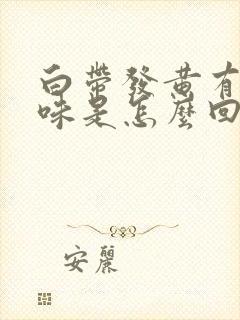 白帶發黃有
味是怎麼回
安麗